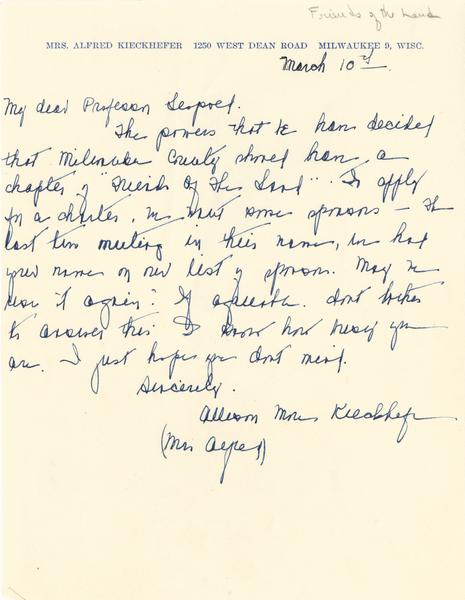 Friends of the Land
MRS. ALFRED KIECKHEFER 1250 WEST DEAN ROAD MILWAUKEE 9, WISC.
March 10th.
My dear Professor Leopold.
The powers that be have decided
that Milwaukee County should have a
chapter of "Friends Of The Land". To apply
for a charter, we want some sponsors - The
last two meeting in this name, we had
your name on our list of sponsors. May we
use it again? If agreeable don't bother
to answer this I know how busy you
are. I just hope you don't mind.
Sincerely.
Allison Kieckhefer
(Mrs Alfred)